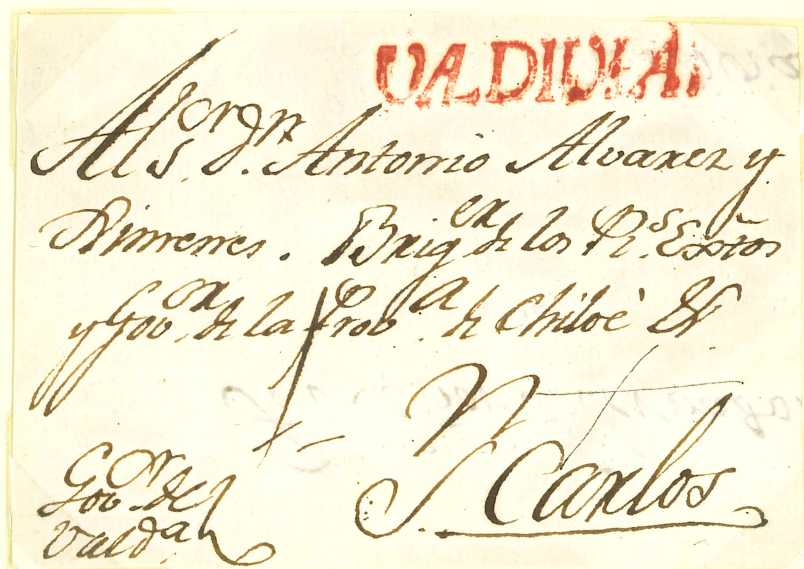 VALDIVIA.
Al S.or d.n Antonio Alvarez y
Ximenes. Brig.er de los R.s Exños
y Gov.or de la Prov.a de Chiloè &.
S.n Carlos
Gov.or de
Vald.a